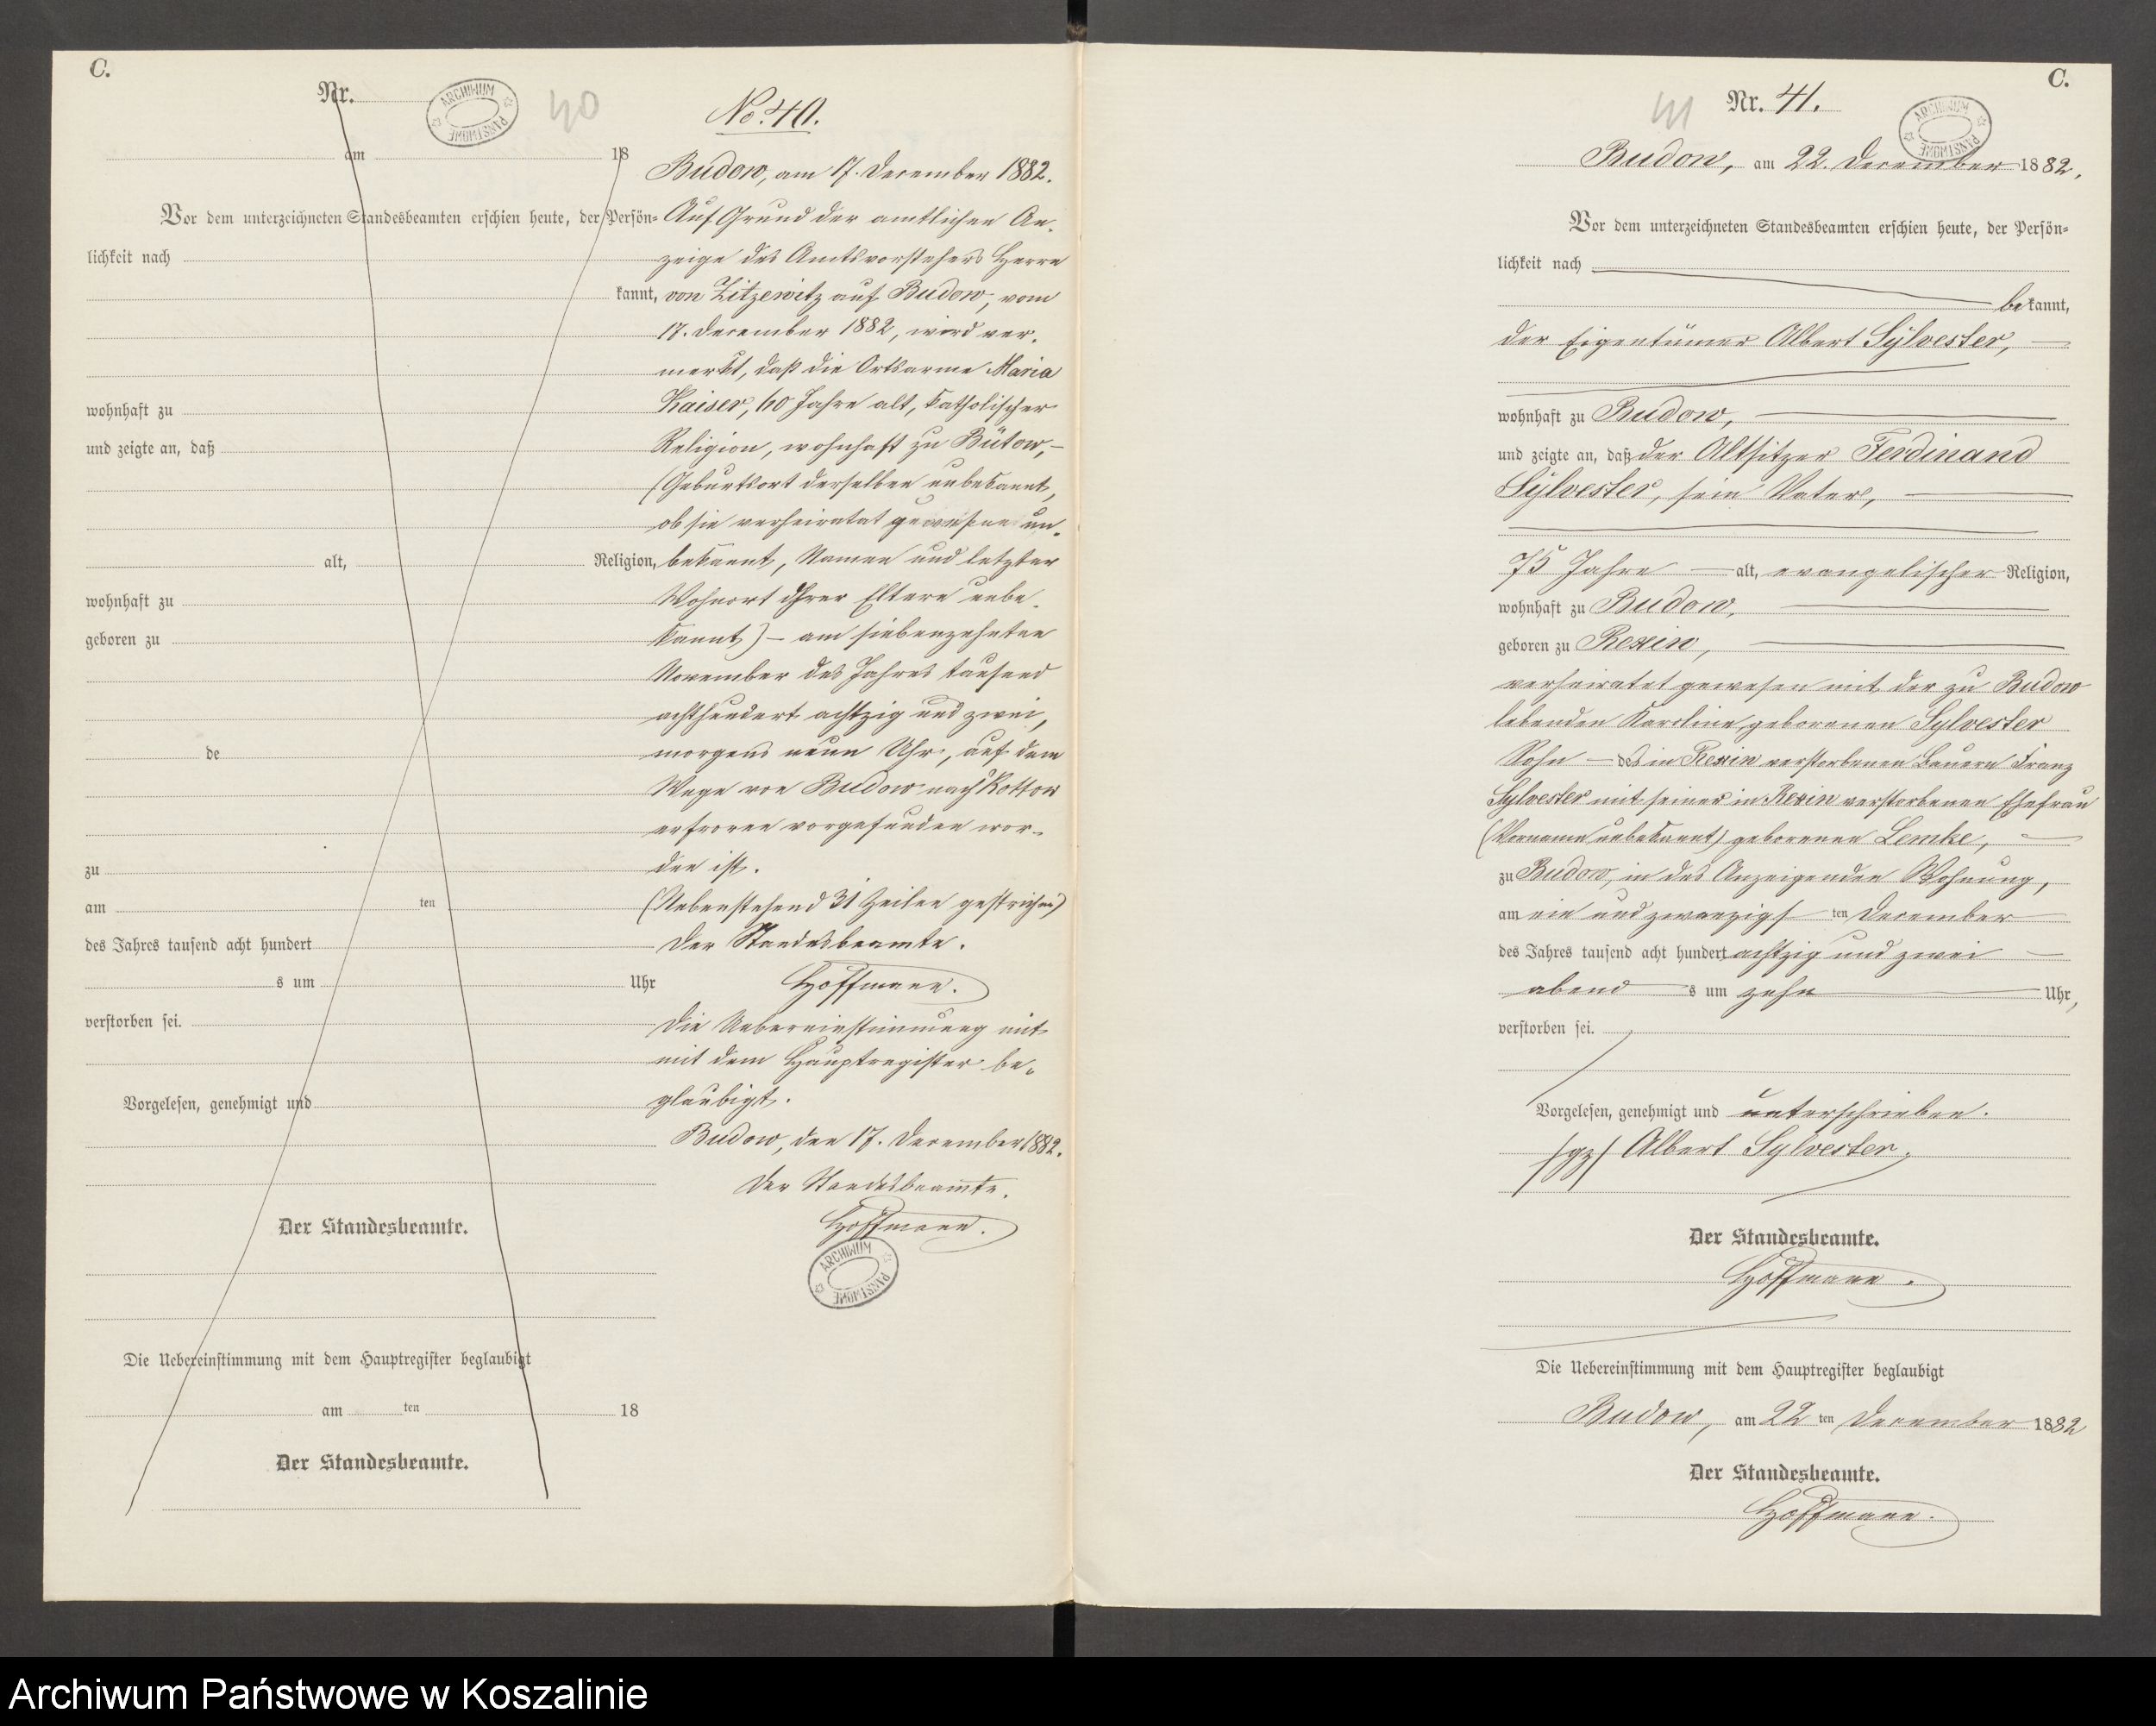 C.
Nr.
ARCHIWUM PAŃSTWOWE
40
am 18
Vor dem unterzeichneten Standesbeamten erschien heute, der Persön-
lichkeit nach
kannt,
wohnhaft zu
und zeigte an, daß
alt, Religion,
wohnhaft zu
geboren zu
de
zu
am ten
des Jahres tausend acht hundert
s um Uhr
verstorben sei.
Vorgelesen, genehmigt und
Der Standesbeamte.
Die Uebereinstimmung mit dem Hauptregister beglaubigt
am ten 18
Der Standesbeamte.
No. 40.
Budow, am 17. December 1882.
Auf Grund der amtlichen An-
zeige des Amtsvorstehers Herrn
von Zitzewitz auf Budow, vom
17. December 1882, wird ver-
merkt, daß die Ortsarme Maria
Kaiser, 60 Jahre alt, katholischer
Religion, wohnhaft zu Bütow, –
(Geburtsort derselben unbekannt,
ob sie verheiratet gewesen un-
bekannt, Namen und letzter
Wohnort ihrer Eltern unbe-
kannt) – am siebenzehnten
November des Jahres tausend
achthundert achtzig und zwei,
morgens neun Uhr, auf dem
Wege von Budow nach Kottow
erfroren vorgefunden wor-
den ist.
(Nebenstehend 31 Zeilen gestrichen)
Der Standesbeamte.
Hoffmann.
Die Uebereinstimmung mit
mit dem Hauptregister be-
glaubigt.
Budow, den 17. December 1882.
Der Standesbeamte.
Hoffmann.
ARCHIWUM PAŃSTWOWE
C.
41
Nr. 41.
ARCHIWUM PAŃSTWOWE
Budow, am 22. December 1882.
Vor dem unterzeichneten Standesbeamten erschien heute, der Persön-
lichkeit nach
bekannt,
der Eigentümer Albert Sylvester,
wohnhaft zu Budow,
und zeigte an, daß der Altsitzer Ferdinand
Sylvester, sein Vater,
75 Jahre alt, evangelischer Religion,
wohnhaft zu Budow,
geboren zu Rexin,
verheiratet gewesen mit der zu Budow
lebenden Karoline geborenen Sylvester
Sohn – des in Rexin verstorbenen Bauern Franz
Sylvester mit seiner in Rexin verstorbenen Ehefrau
(Vorname unbekannt) geborenen Lemke,
zu Budow, in des Anzeigenden Wohnung,
am ein und zwanzigsten December
des Jahres tausend acht hundert achtzig und zwei
abends um zehn Uhr,
verstorben sei.
Vorgelesen, genehmigt und unterschrieben.
/gz/ Albert Sylvester.
Der Standesbeamte.
Hoffmann.
Die Uebereinstimmung mit dem Hauptregister beglaubigt
Budow, am 22 ten December 1882
Der Standesbeamte.
Hoffmann.
Archiwum Państwowe w Koszalinie